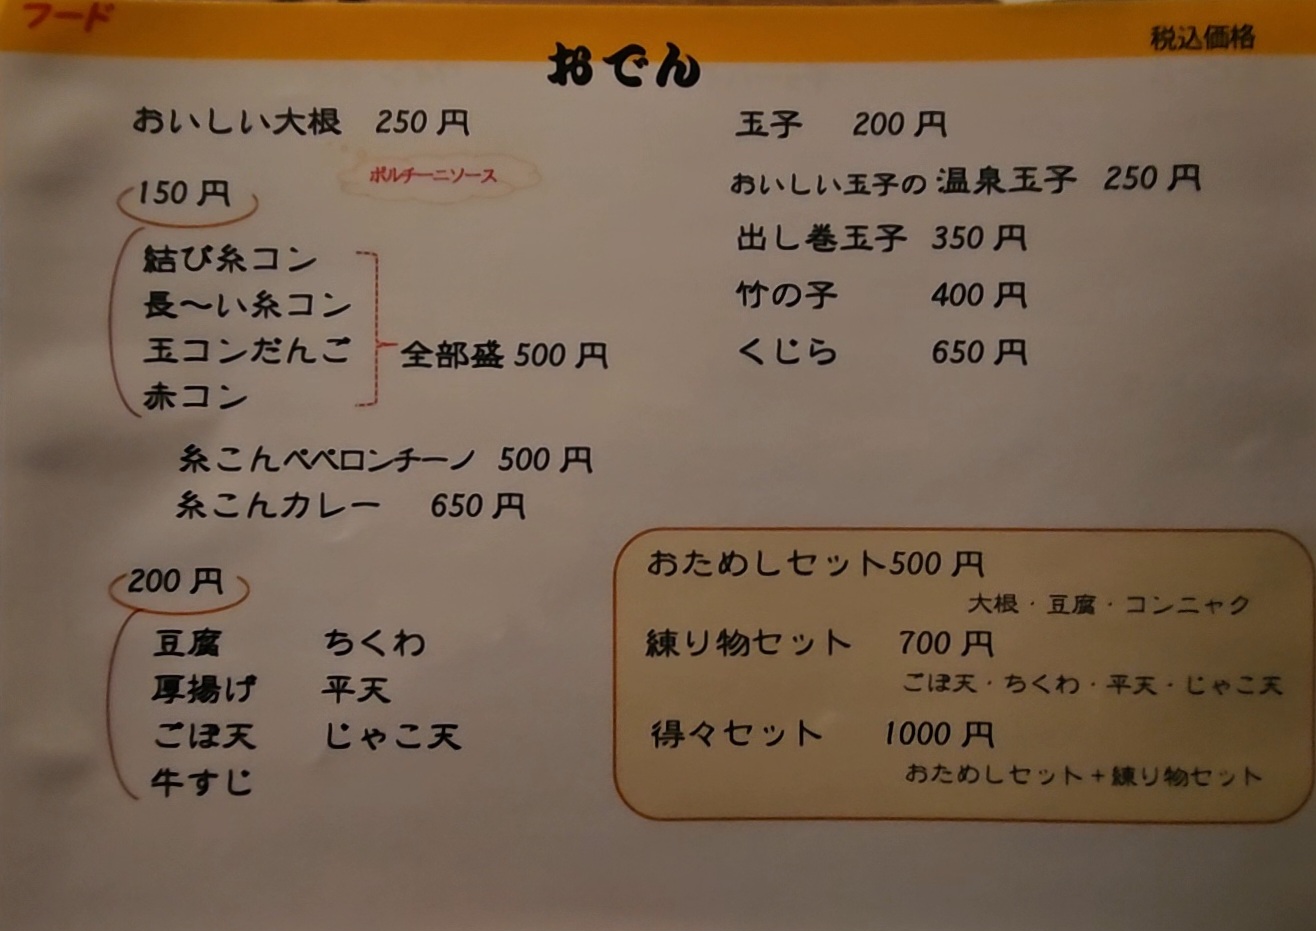 フード
税込価格
おでん
おいしい大根 250 円
ポルチーニソース
150 円
結び糸コン
長～い糸コン
玉コンだんご
赤コン
全部盛 500 円
糸こんペペロンチーノ 500 円
糸こんカレー 650 円
200 円
豆腐 ちくわ
厚揚げ 平天
ごぼ天 じゃこ天
牛すじ
玉子 200 円
おいしい玉子の 温泉玉子 250 円
出し巻玉子 350 円
竹の子 400 円
くじら 650 円
おためしセット500 円
大根・豆腐・コンニャク
練り物セット 700 円
ごぼ天・ちくわ・平天・じゃこ天
得々セット 1000 円
おためしセット＋練り物セット